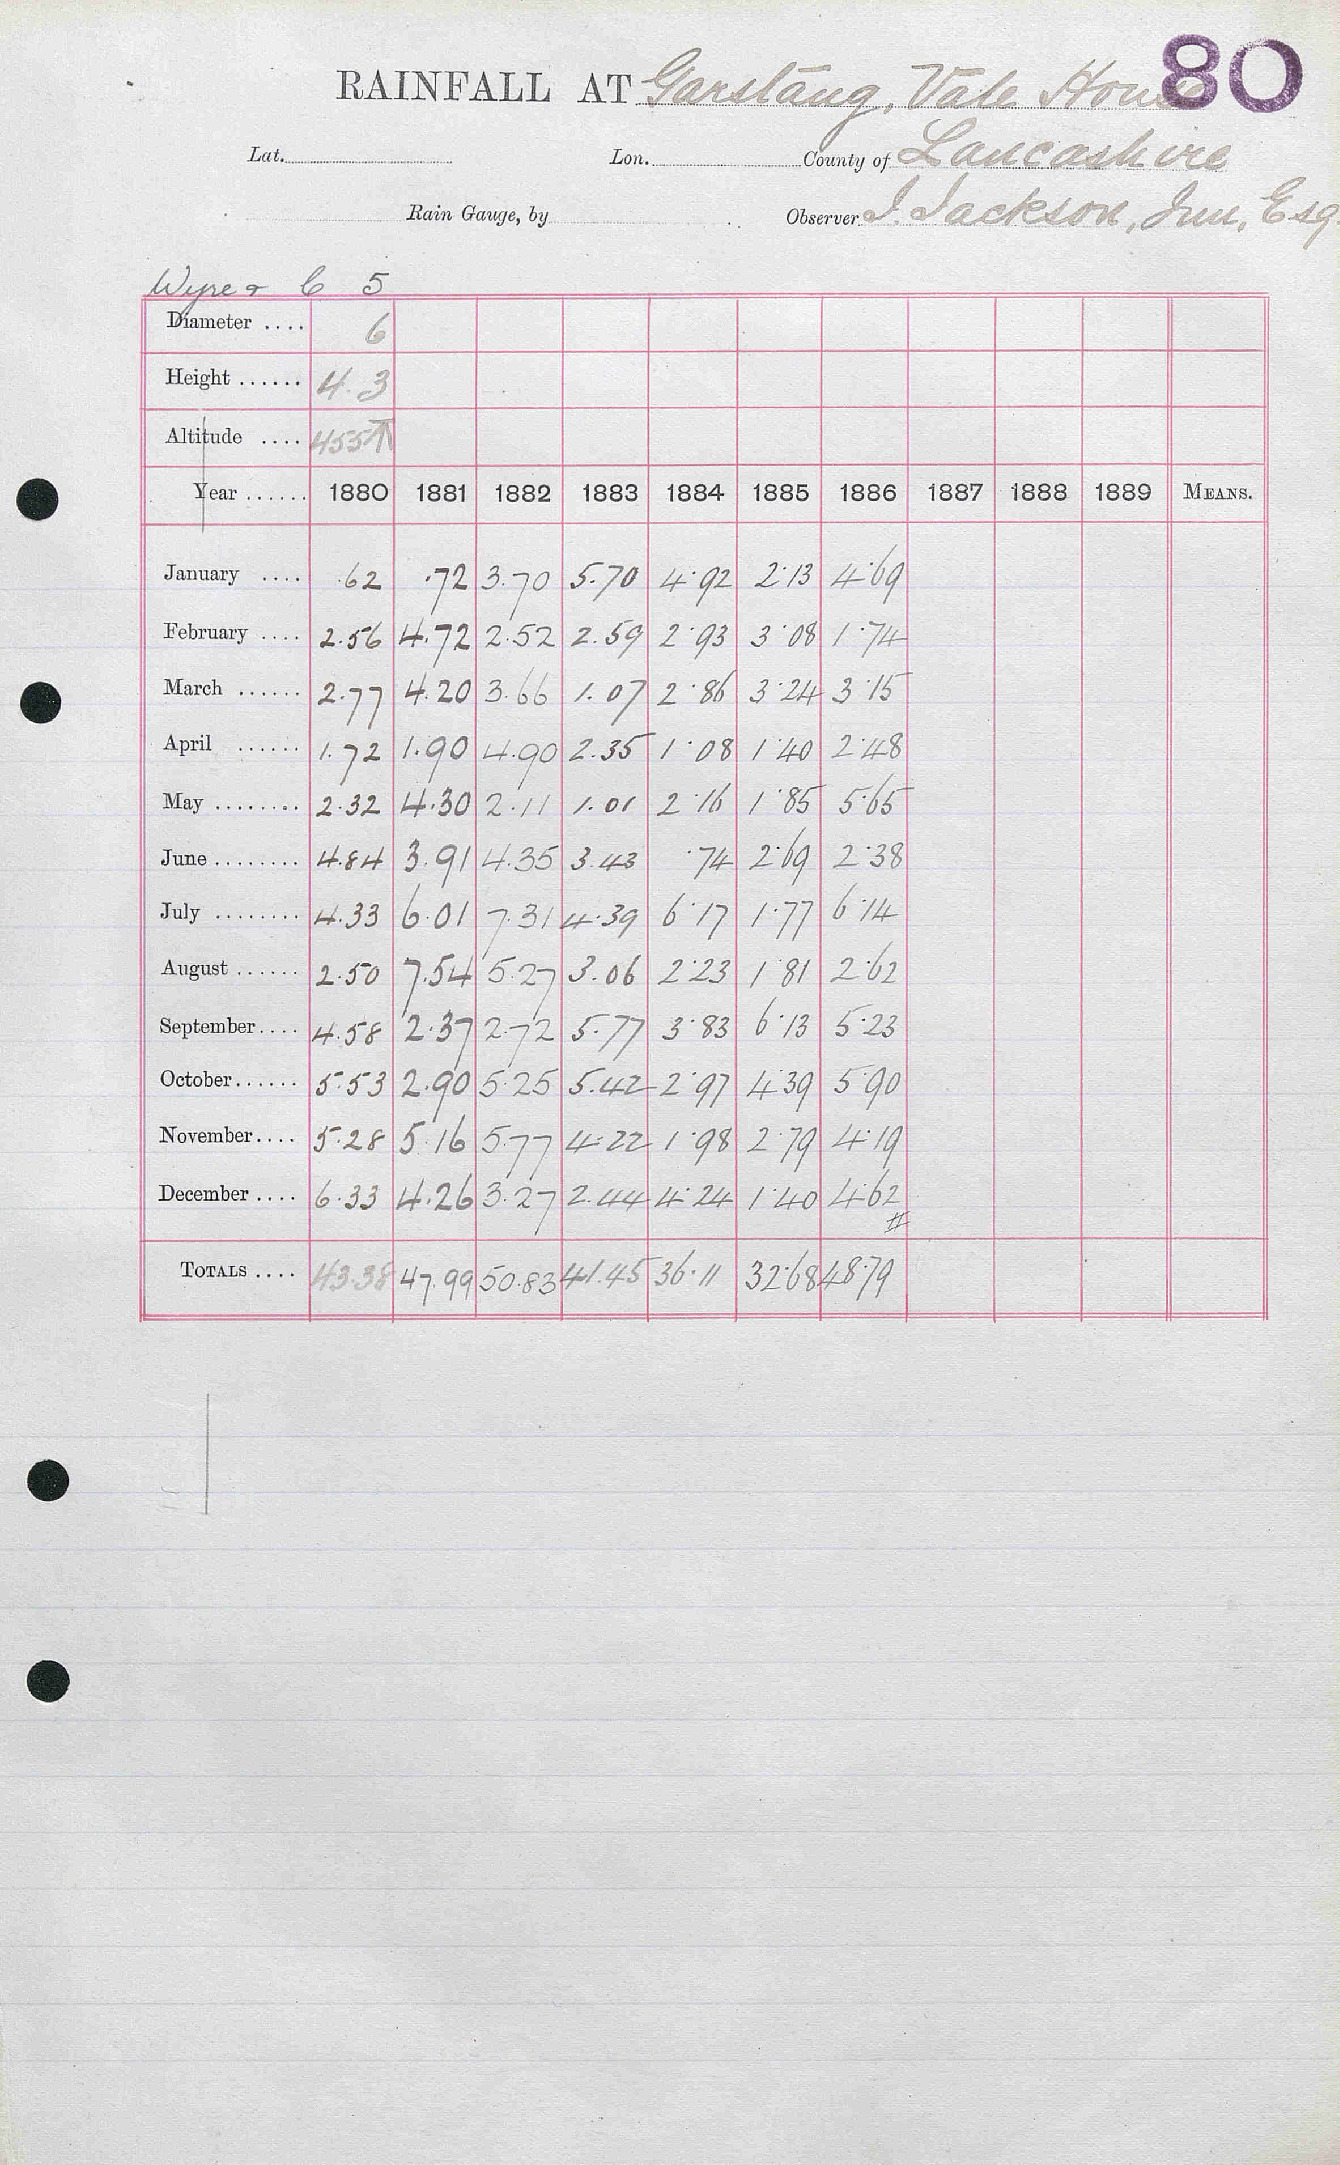 80
RAINFALL AT Garstang, Vale House
Lat. Lon. County of Lancashire
Rain Gauge, by Observer J. Jackson, Jun, Esq.
Wyre & C 5
Diameter .... 6
Height ...... 4.3
Altitude .... 455↑
Year ...... 1880 1881 1882 1883 1884 1885 1886 1887 1888 1889 MEANS.
January .... .62 .72 3.70 5.70 4.92 2.13 4.69
February .... 2.56 4.72 2.52 2.59 2.93 3.08 1.74
March ...... 2.77 4.20 3.66 1.07 2.86 3.24 3.15
April ...... 1.72 1.90 4.90 2.35 1.08 1.40 2.48
May ........ 2.32 4.30 2.11 1.01 2.16 1.85 5.65
June ........ 4.84 3.91 4.35 3.43 .74 2.69 2.38
July ........ 4.33 6.01 7.31 4.39 6.17 1.77 6.14
August ...... 2.50 7.54 5.27 3.06 2.23 1.81 2.62
September .... 4.58 2.37 2.72 5.77 3.83 6.13 5.23
October ...... 5.53 2.90 5.25 5.42 2.97 4.39 5.90
November .... 5.28 5.16 5.77 4.22 1.98 2.79 4.19
December .... 6.33 4.26 3.27 2.44 4.24 1.40 4.62
#
TOTALS .... 43.38 47.99 50.83 41.45 36.11 32.68 48.79